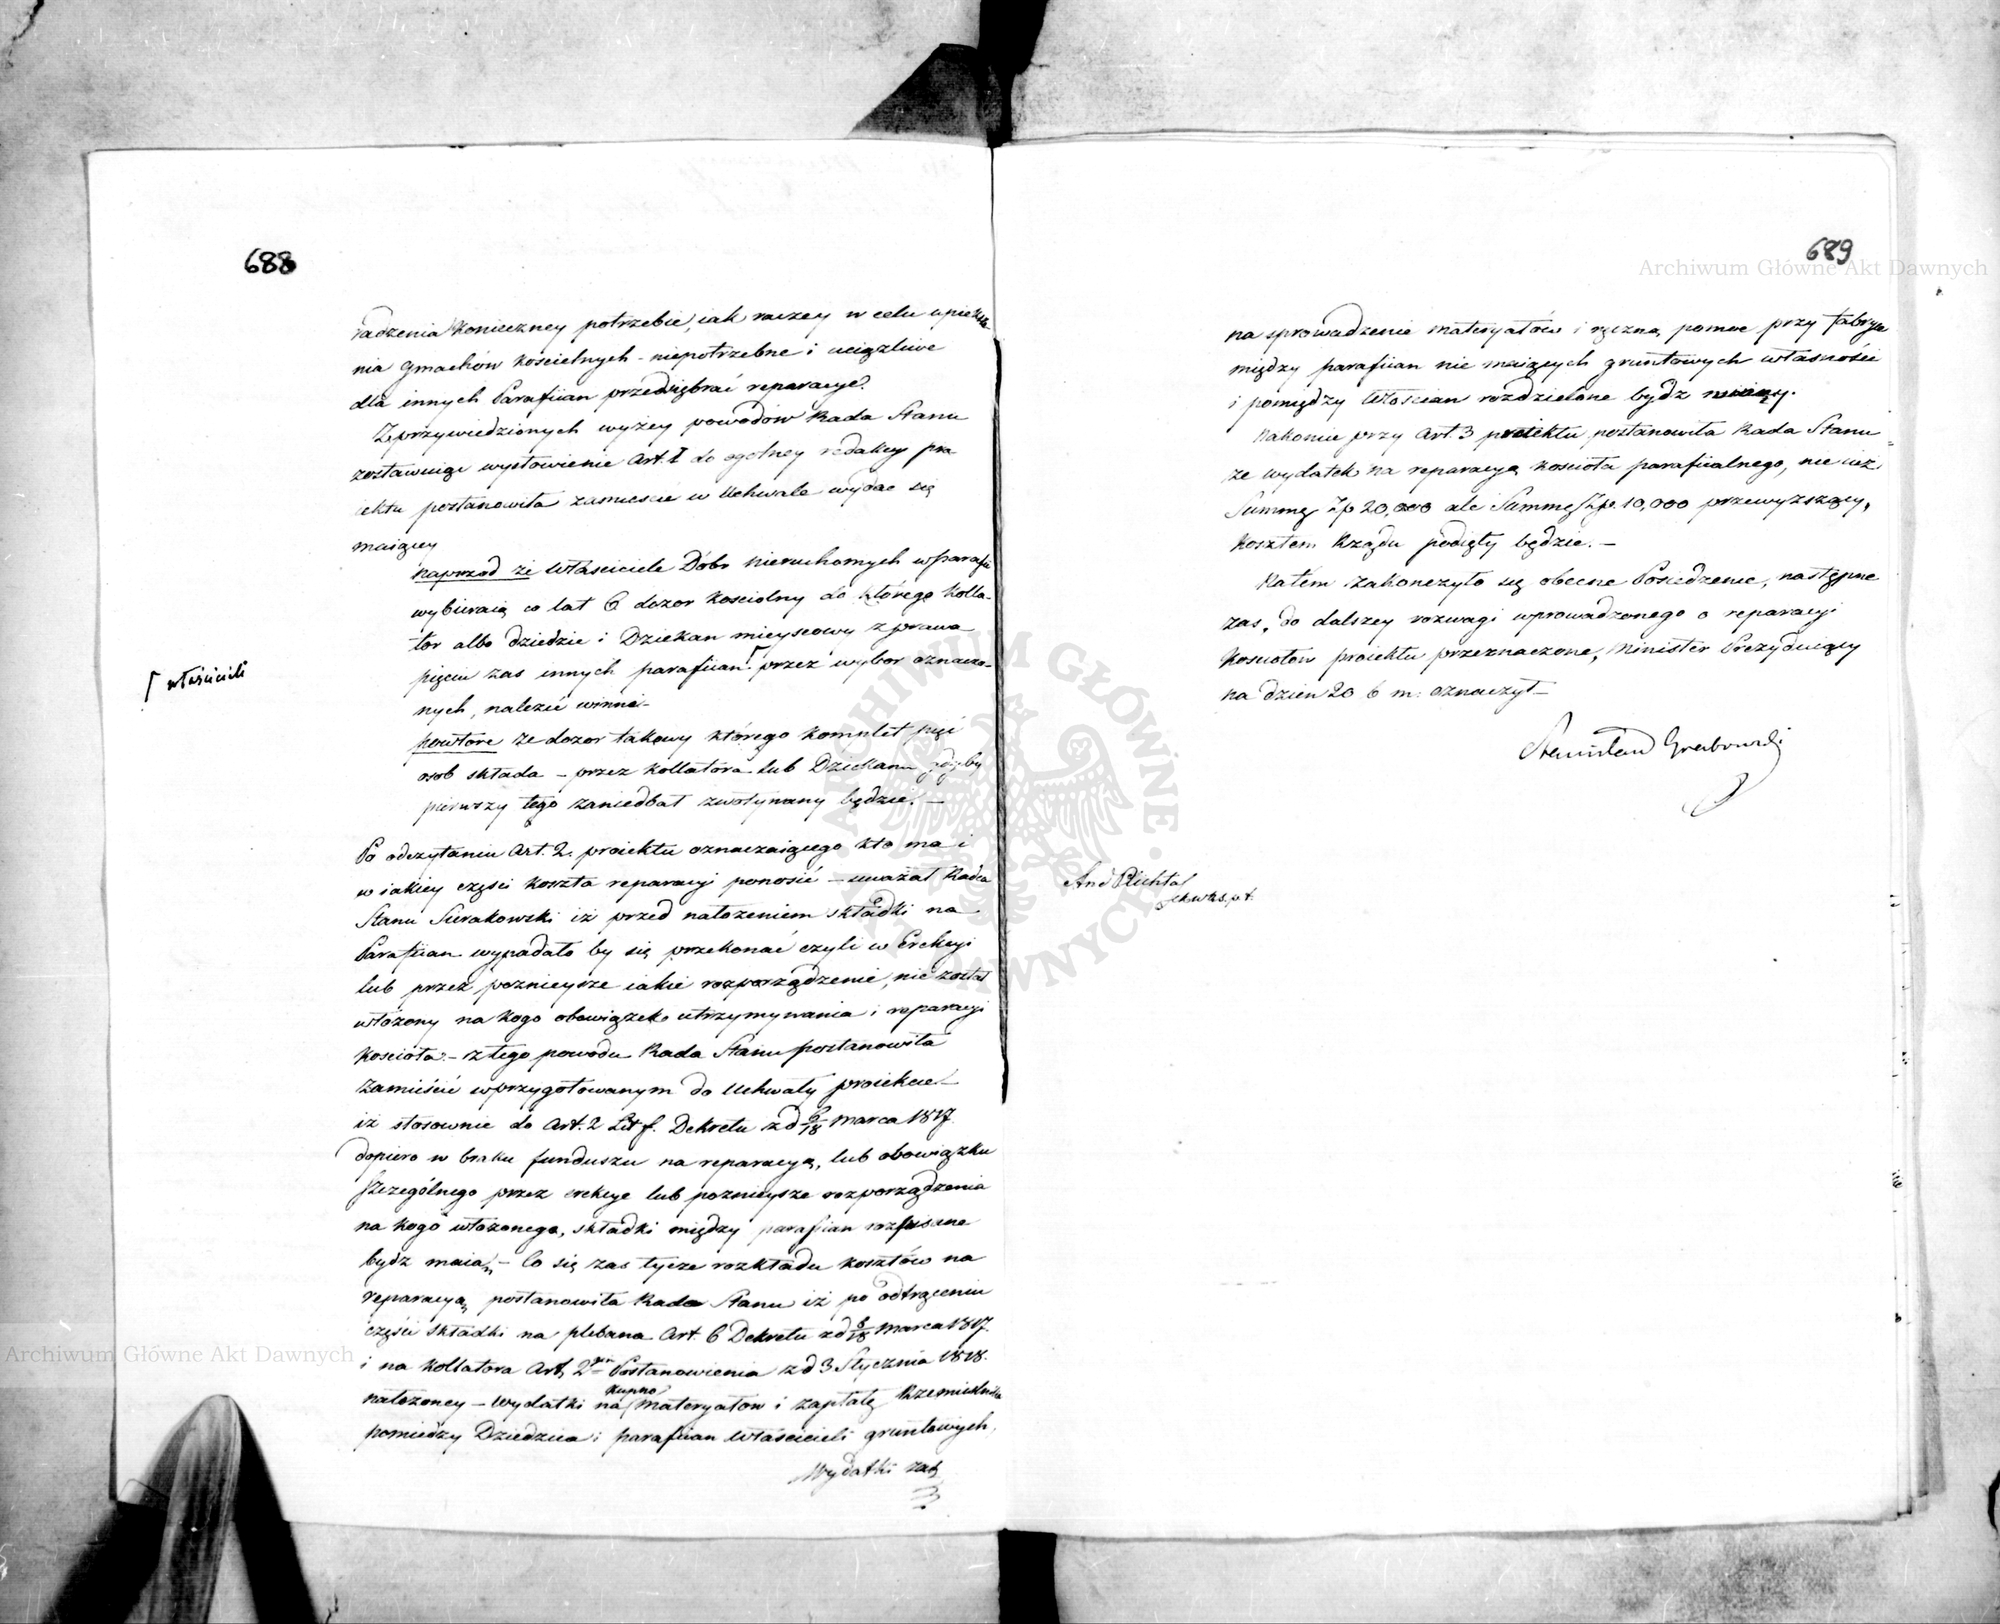 688
radzenia koniecznej potrzebie, iak raczey w celu upiększe-
nia gmachów kościelnych niepotrzebne i uciążliwe
dla innych Parafiian przedsiębrać reparacye.
Z przywiedzionych wyżey powodów Rada Stanu
zostawuiąc wysłowienie Art. 1 do ogolney redakcyi pro
iektu postanowiła zamieście w Uchwale wydać się
maiącey
naprzod że właściciele Dóbr nieruchomych w parafii
wybieraią co lat 6 dozor kościelny do którego Kolla-
tor albo dziedzic i Dziekan mieyscowy z prawa
pięciu zas innych parafiian ⌈ przez wybor oznaczo-
nych, należeć winni –
⌈ właścicieli
powtore że dozor takowy którego komplet pięć
osob składa – przez Kollatora lub Dziekana gdyby
pierwszy tego zaniedbał zwoływany będzie. –
Po odczytaniu Art. 2. proiektu oznaczaiącego kto ma i
w iakiey części koszta reparacyi ponosić – uważał Radca
Stanu Sierakowski iż przed nałożeniem składki na
Parafiian wypadało by się przekonać czyli w Erekcyi
lub przez poznieysze iakie rozporządzenie, nie został
włożony na kogo obowiązek utrzymywania i reparacyi
kościoła – z tego powodu Rada Stanu postanowiła
zamieście w przygotowanym do Uchwały proiekcie –
iż stosownie do Art. 2 Lit f. Dekretu z d 6/18 Marca 1817.
dopiero w braku funduszu na reparacyą, lub obowiązku
szczególnego przez erekcye lub poznieysze rozporządzenia
na kogo włożonego, składki między parafiian rozpisane
bydz maią, – Co się zas tycze rozkładu kosztów na
reparacyą, postanowiła Rada Stanu iż po odtrąceniu
części składki na plebana Art. 6 Dekretu z d 6/18 Marca 1817.
i na kollatora Art. 2gim Postanowienia z d 3 Stycznia 1818.
nałożoney – Wydatki na kupno Materyałow i zapłatę Rzemieślnika
pomiędzy Dziedzica i parafiian właścicieli gruntowych,
Wydatki zaś
689
na sprowadzenie materyałów i ręczną pomoc przy fabryce
między parafiian nie maiących gruntowych własności
i pomiędzy Włościan rozdzielone bydz maią.
Nakoniec przy Art. 3 proiektu, postanowiła Rada Stanu
że wydatek na reparacyą kościoła parafiialnego, nie iuż
Summę Złp 20,000 ale Summę Złp. 10,000 przewyższaiący,
kosztem Rządu podięty będzie. –
Na tém zakonczyło się obecne Posiedzenie, następne
zas, do dalszey rozwagi wprowadzonego o reparacyi
Kosciołow proiektu przeznaczone, Minister Prezyduiący
na dzien 20 b m. oznaczył –
Stanisław Grabowski
And Plichta
Archiwum Główne Akt Dawnych
Archiwum Główne Akt Dawnych
ARCHIWUM GŁÓWNE AKT DAWNYCH